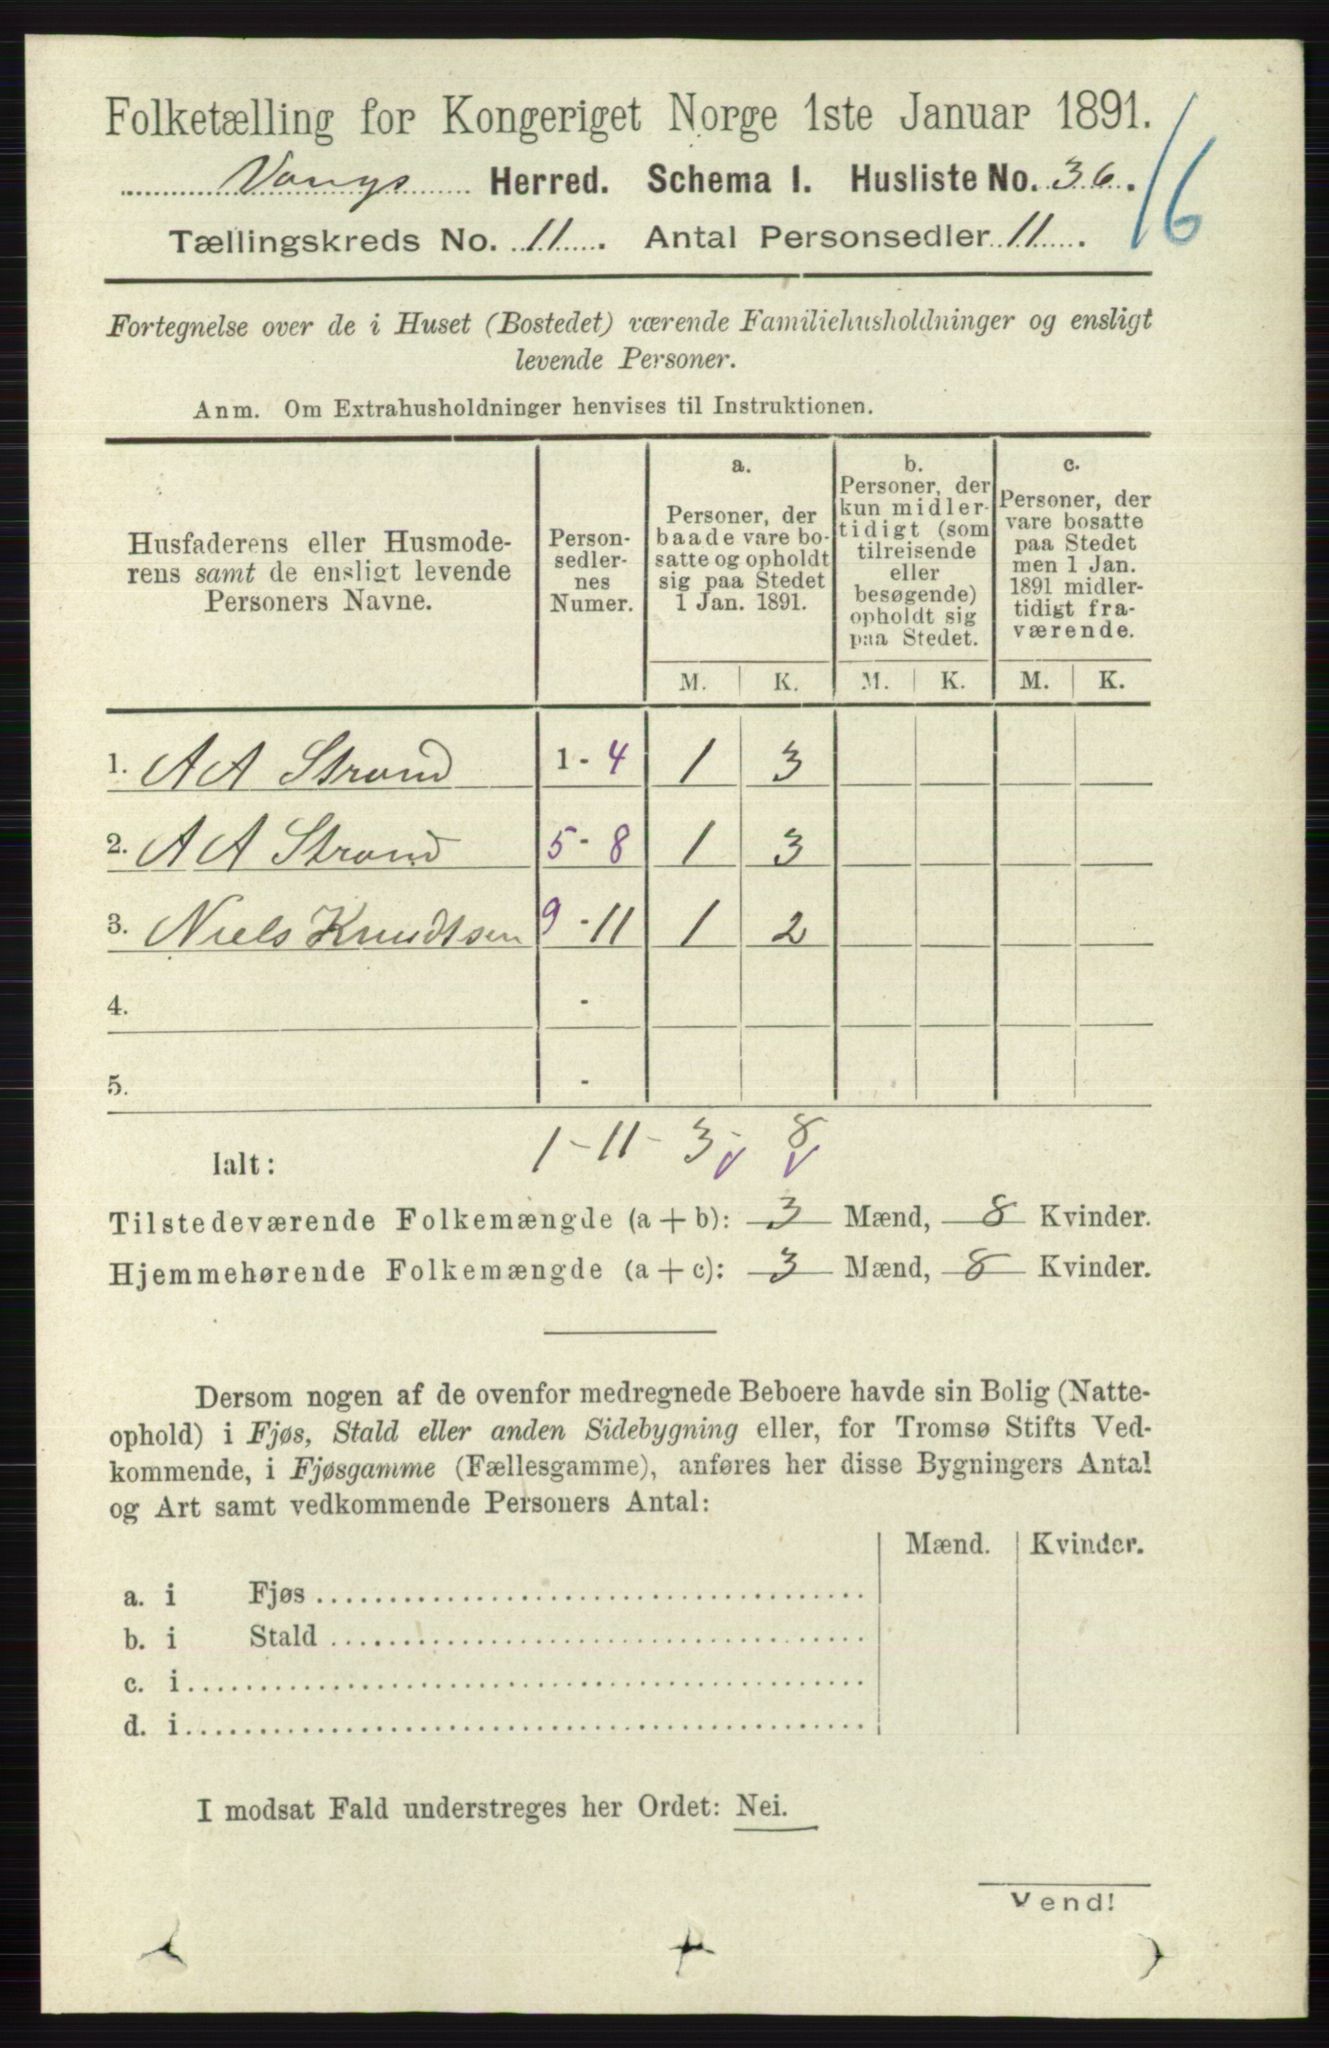 Folketælling for Kongeriget Norge 1ste Januar 1891.
Vangs Herred. Schema I. Husliste No. 36.
16
Tællingskreds No. 11. Antal Personsedler 11.
Fortegnelse over de i Huset (Bostedet) værende Familiehusholdninger og ensligt
levende Personer.
Anm. Om Extrahusholdninger henvises til Instruktionen.
Husfaderens eller Husmode-
rens samt de ensligt levende
Personers Navne.
Person-
sedler-
nes
Numer.
a.
Personer, der
baade vare bo-
satte og opholdt
sig paa Stedet
1 Jan. 1891.
b.
Personer, der
kun midler-
tidigt (som
tilreisende
eller
besøgende)
opholdt sig
paa Stedet.
c.
Personer, der
vare bosatte
paa Stedet
men 1 Jan.
1891 midler-
tidigt fra-
værende.
M. K. M. K. M. K.
1. A A Strand 1 - 4 1 3
2. A A Strand 5 - 8 1 3
3. Niels Knudtsen 9 - 11 1 2
4. -
5. -
Ialt: 1 - 11 - 3 - 8
Tilstedeværende Folkemængde (a + b): 3 Mænd, 8 Kvinder.
Hjemmehørende Folkemængde (a + c): 3 Mænd, 8 Kvinder.
Dersom nogen af de ovenfor medregnede Beboere havde sin Bolig (Natte-
ophold) i Fjøs, Stald eller anden Sidebygning eller, for Tromsø Stifts Ved-
kommende, i Fjøsgamme (Fællesgamme), anføres her disse Bygningers Antal
og Art samt vedkommende Personers Antal:
Mænd. Kvinder.
a. i Fjøs
b. i Stald
c. i
d. i
I modsat Fald understreges her Ordet: Nei.
Vend!